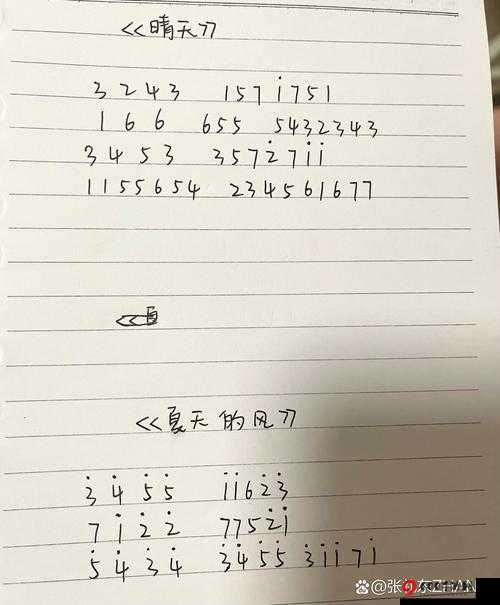 <<晴天>>
3 2 4 3 1 5 7 i 7 5 1
1 6 6 6 5 5 5 4 3 2 3 4 3
3 4 5 3 3 5 7 2̇ 7 i i
1 1 5 5 6 5 4 2 3 4 5 6 1 6 7 7
<<夏天的风>>
3̇ 4̇ 5̇ 5̇ i i 6 2̇ 3̇
7 i 2̇ 2̇ 7 7 5 2̇ i
5̇ 4̇ 3̇ 4̇ 3̇ 4̇ 5̇ 5̇ 3̇ i i 7 i